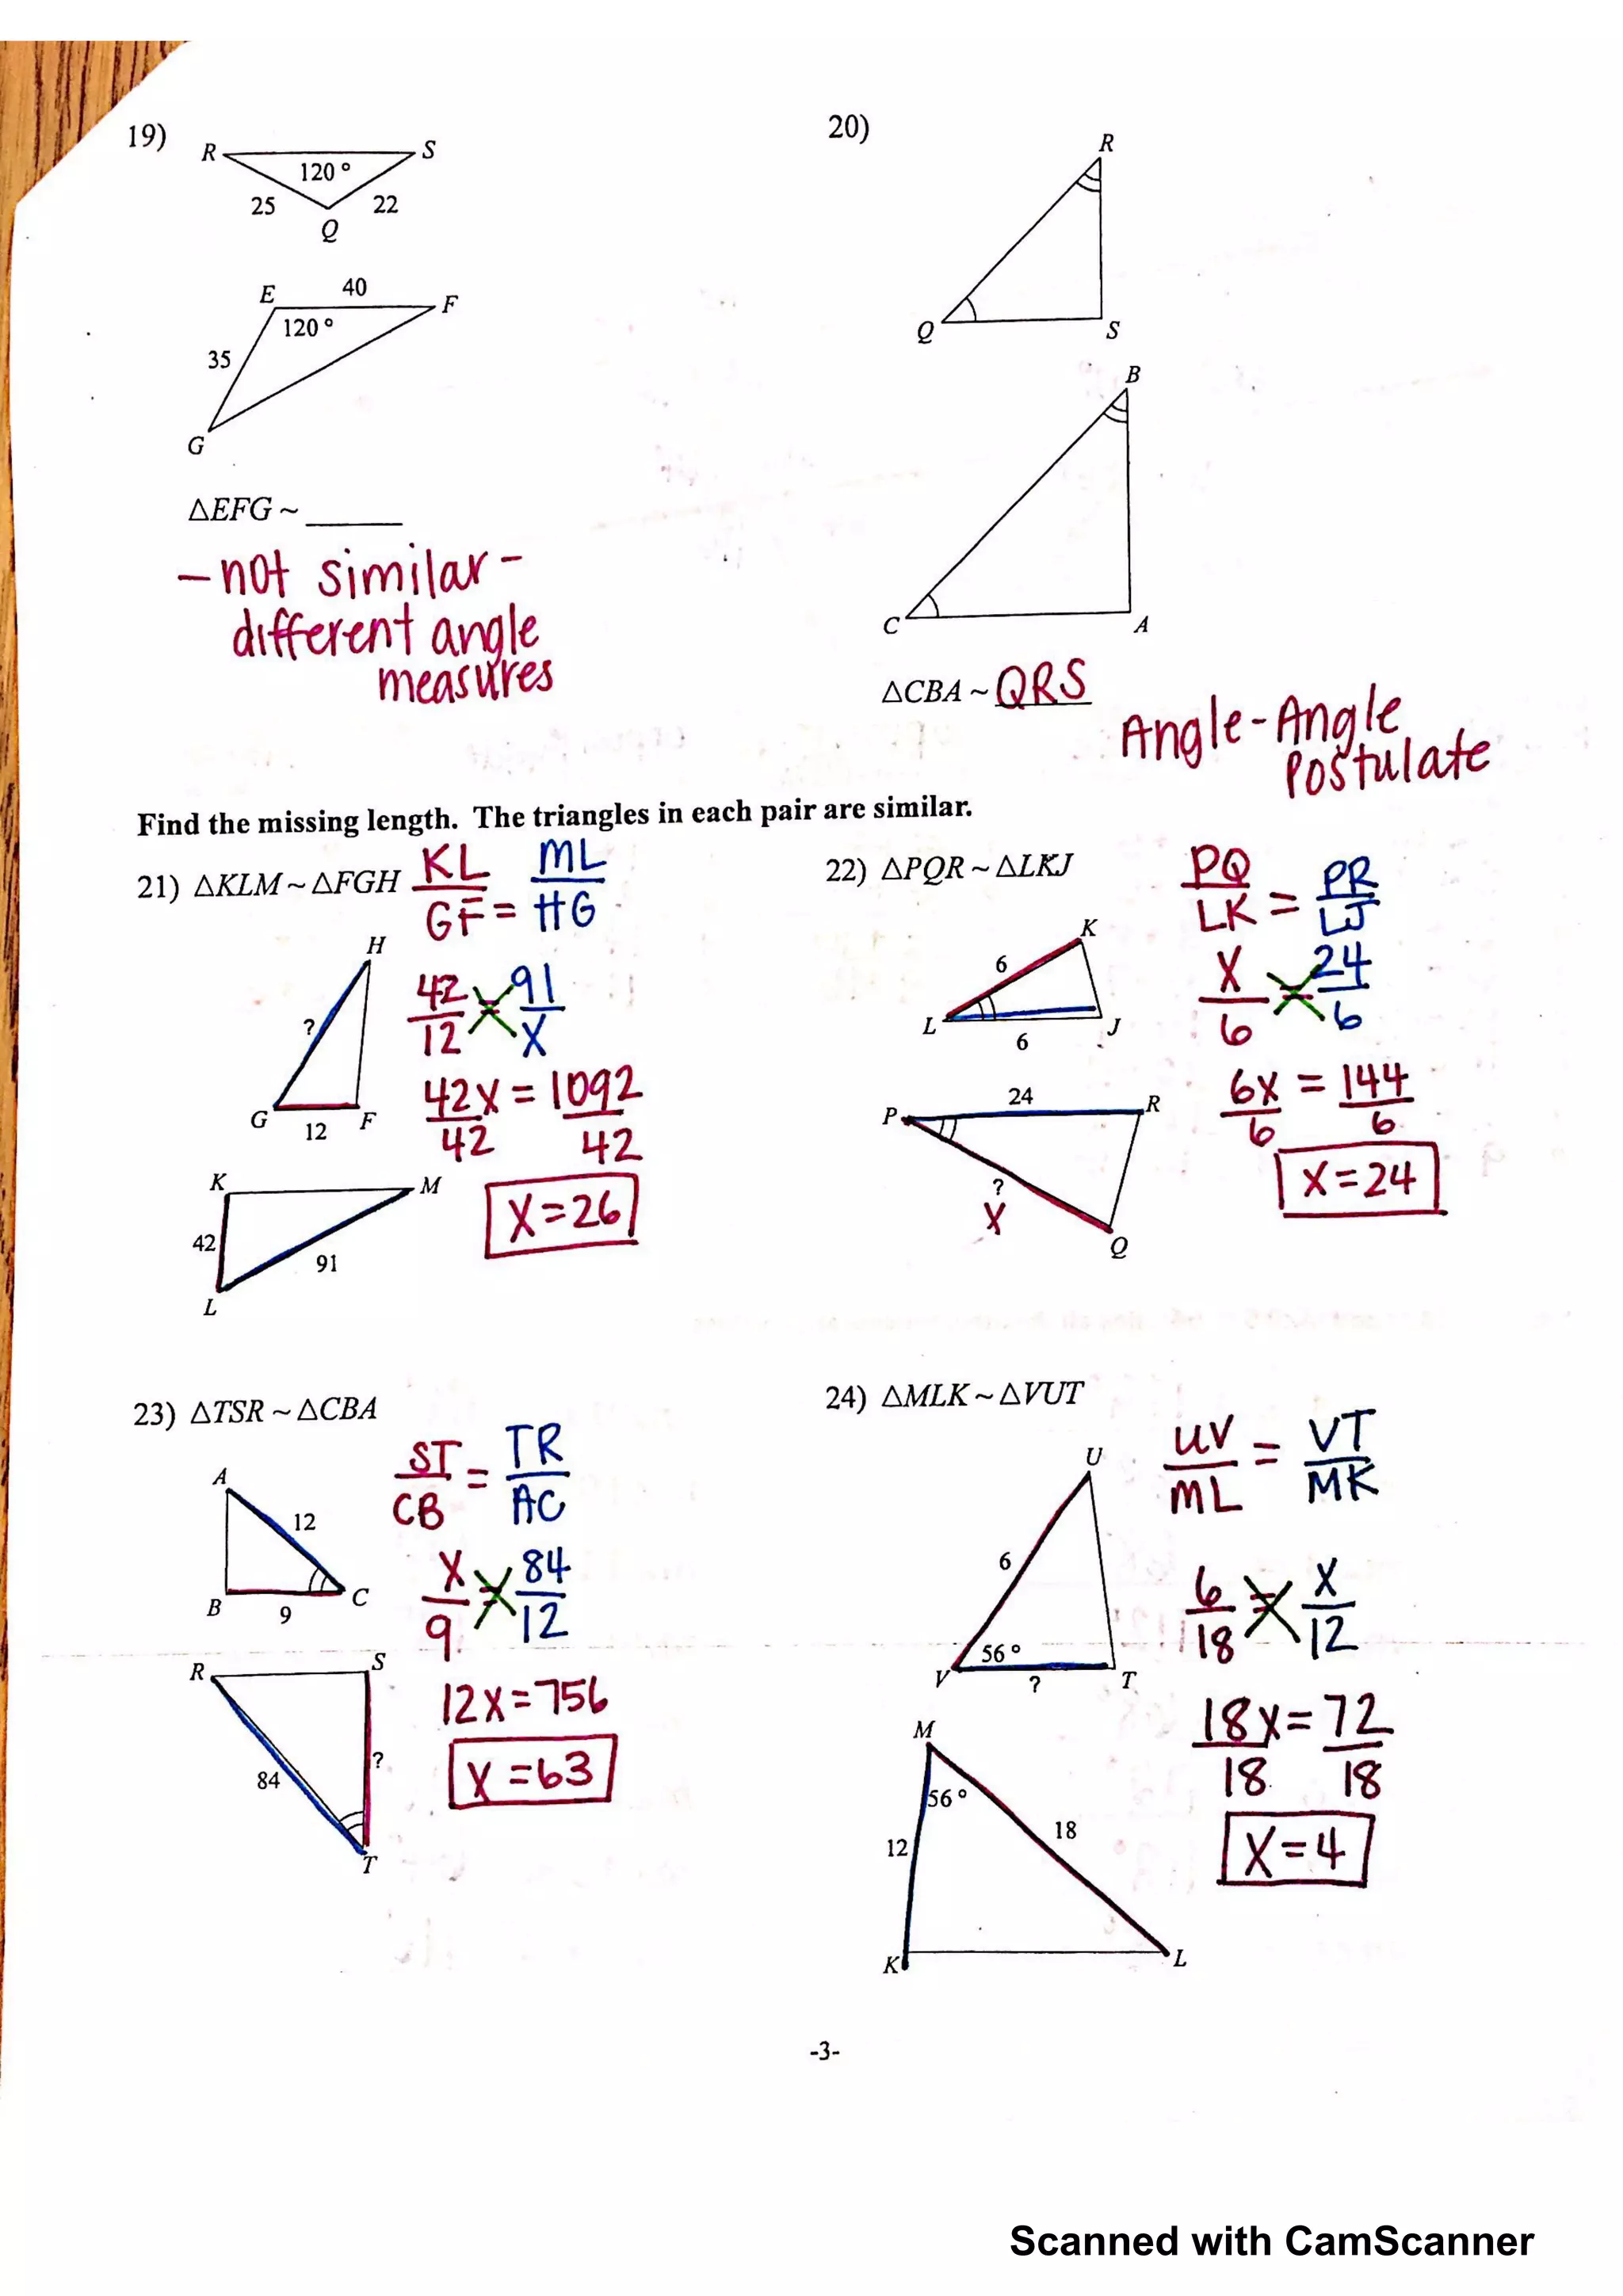 19)
R
S
120°
25
22
Q
E
40
F
120°
35
G
△EFG ~ ______
- not similar -
different angle
measures
20)
R
Q
S
B
C
A
△CBA ~ QRS
Angle-Angle
Postulate
Find the missing length. The triangles in each pair are similar.
21) △KLM ~ △FGH
KL/GF = ML/HG
H
?
G
12
F
42/12 = 91/X
42X = 1092
42 42
K
M
42
91
L
X=26
22) △PQR ~ △LKJ
PQ/LK = PR/LJ
K
6
L
J
6
X/6 = 24/6
6X = 144
6 6
P
24
R
?
X
Q
X=24
23) △TSR ~ △CBA
ST/CB = TR/AC
A
12
B
9
C
X/9 = 84/12
R
S
84
?
T
12X=756
X=63
24) △MLK ~ △VUT
UV/ML = VT/MK
U
6
56°
V
?
T
6/18 = X/12
18X=72
18 18
M
56°
12
18
K
L
X=4
-3-
Scanned with CamScanner